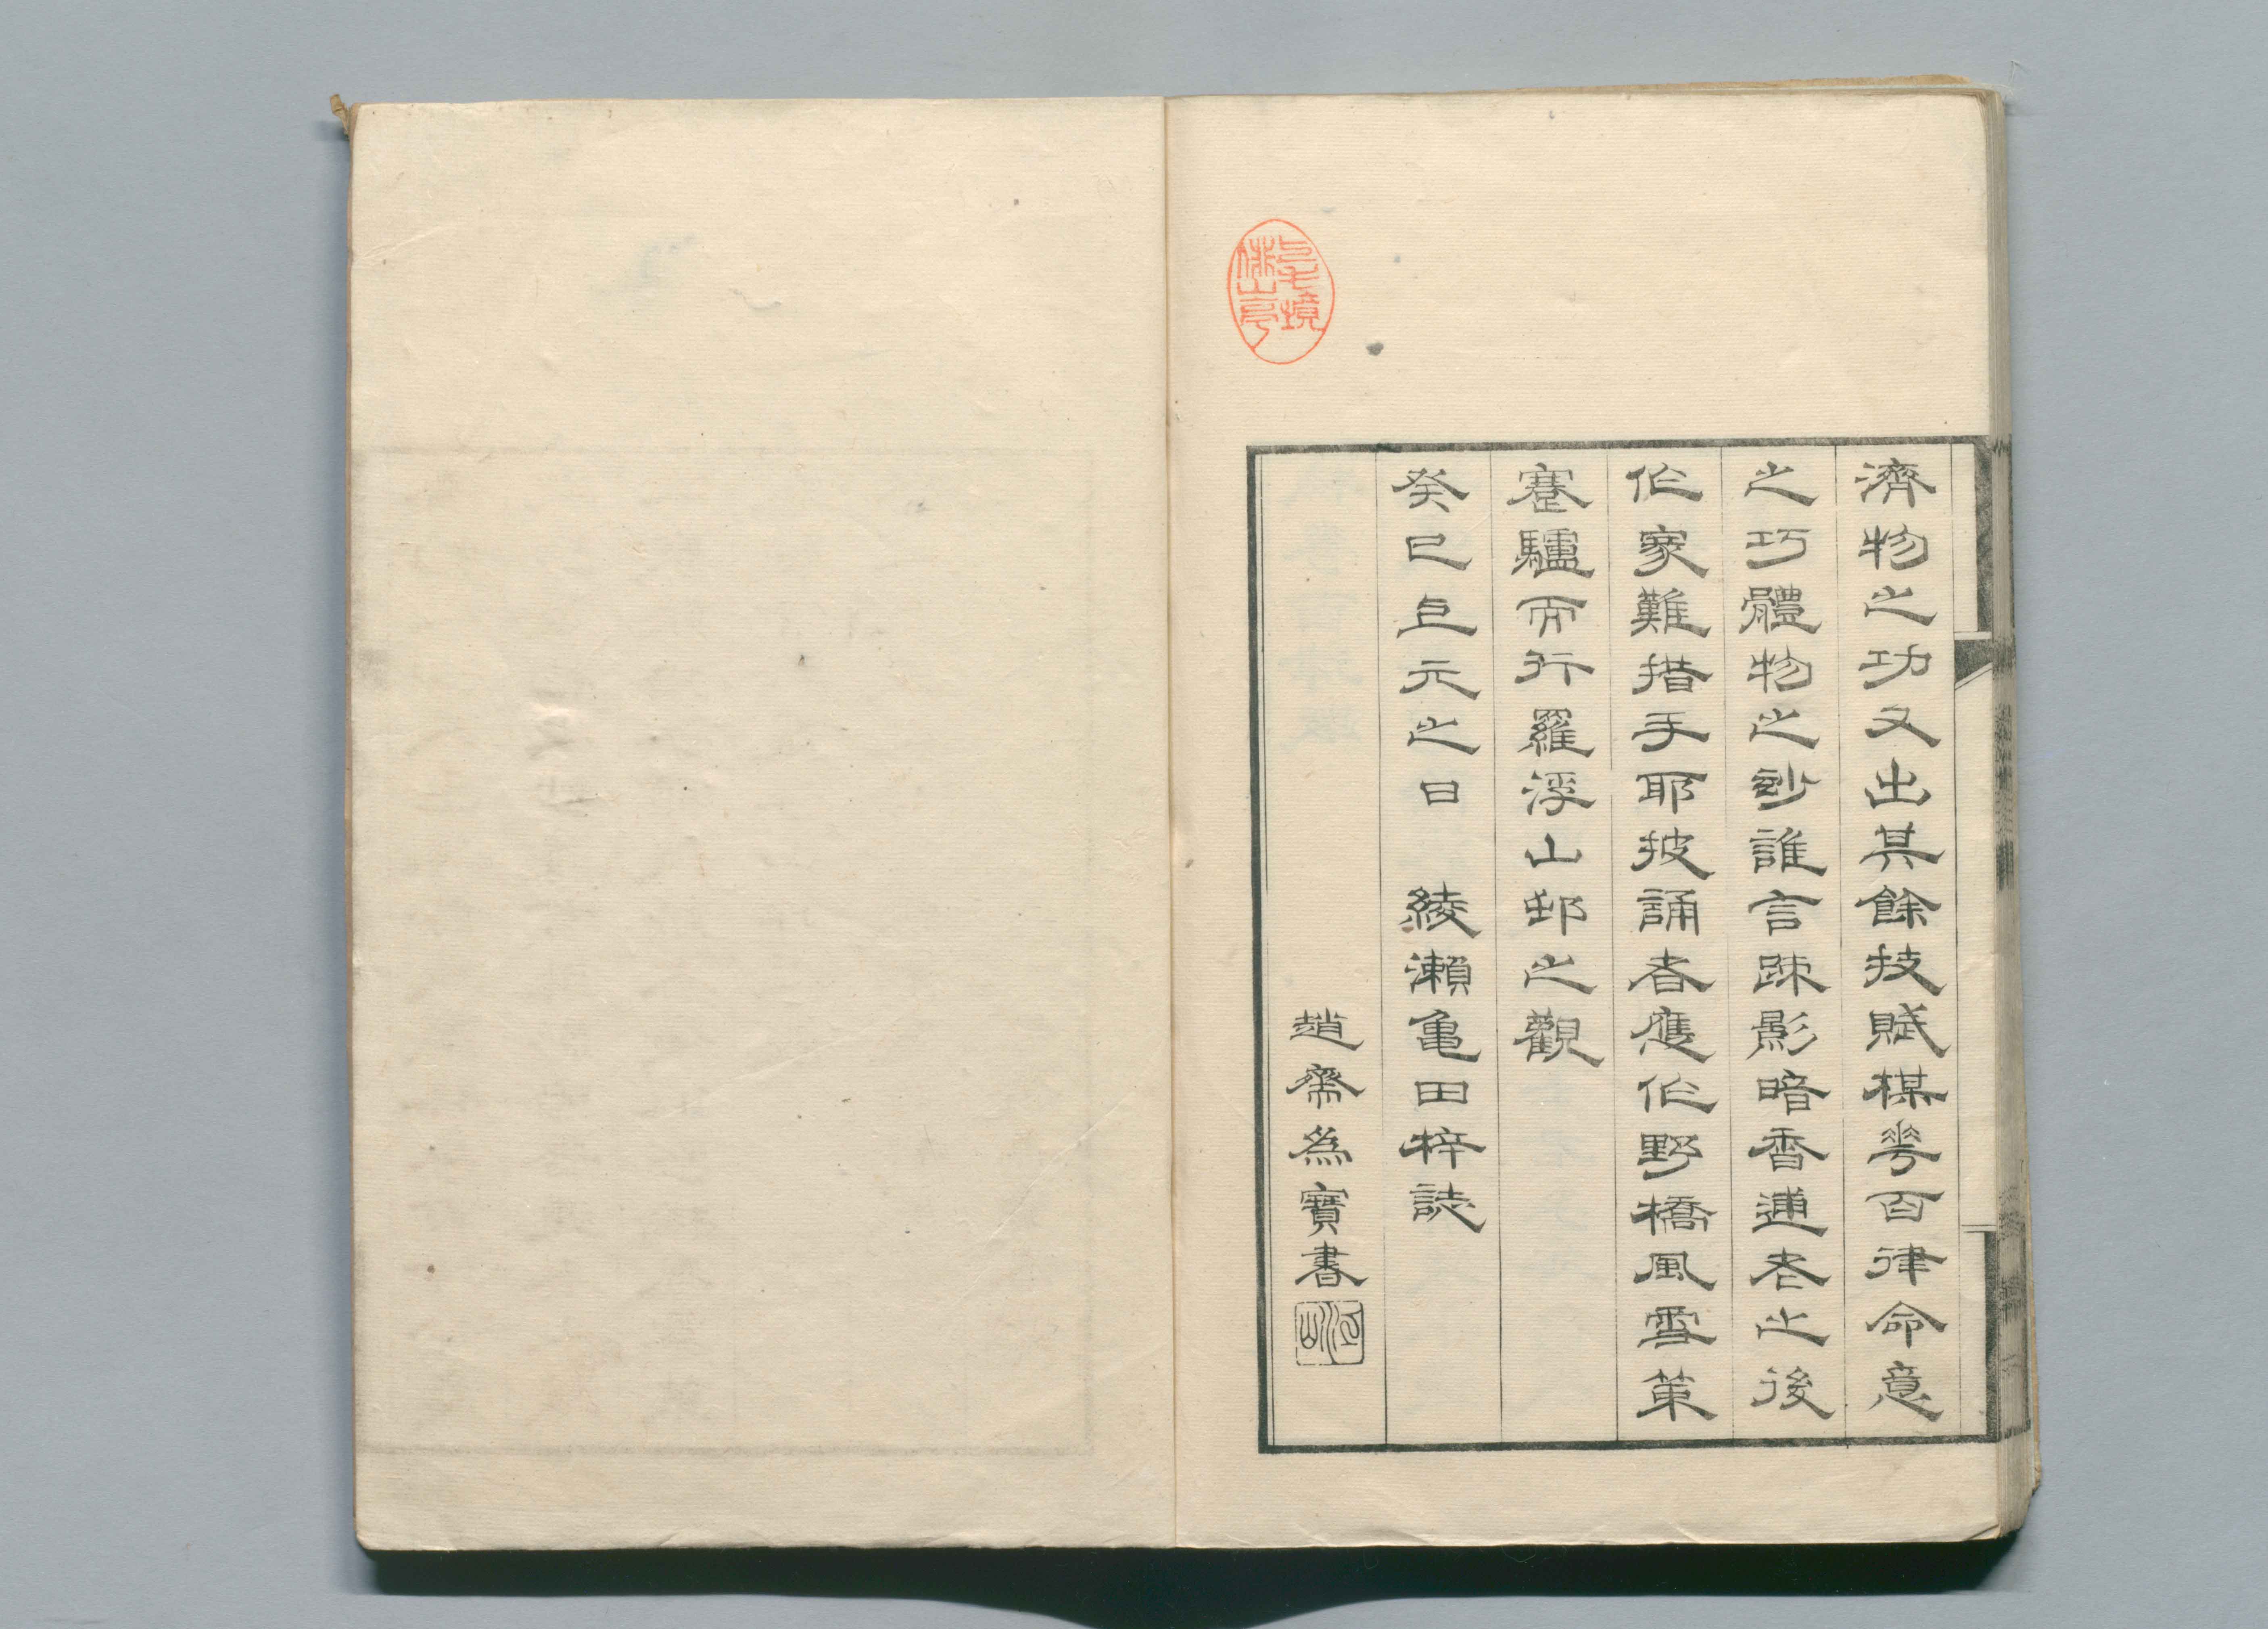 濟物之功又出其餘技賦楳華百律命意
之巧體物之玅誰言疎影暗香逋老之後
作家難措手耶披誦者應作野橋風雪策
蹇驢而行羅浮山邨之觀
癸巳上元之日　綾瀨亀田梓誌
趙齋為寶書